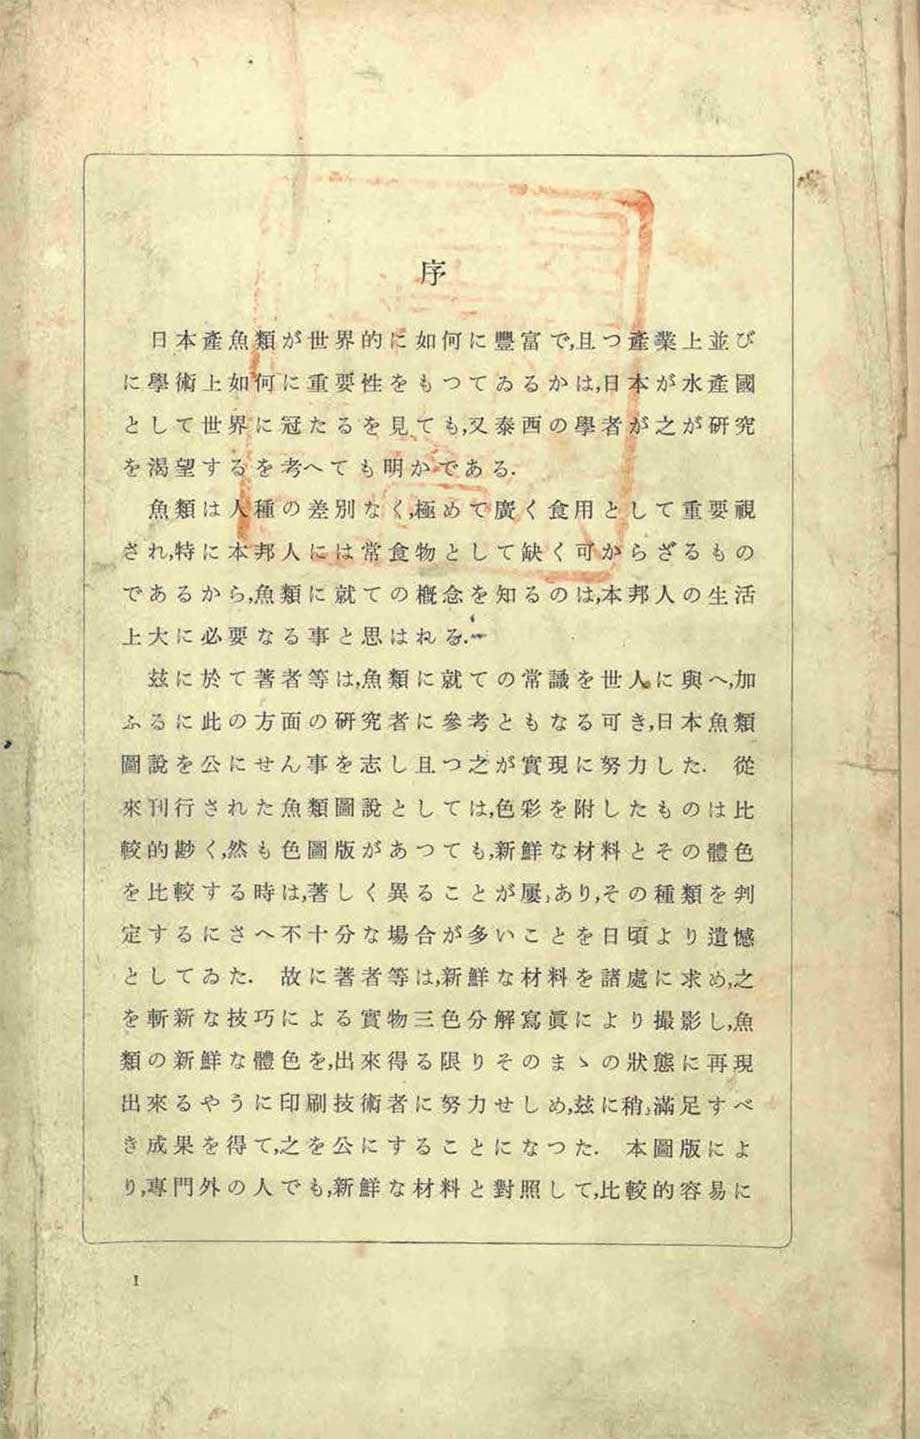 序
日本產魚類が世界的に如何に豐富で,且つ產業上並び
に學術上如何に重要性をもつてゐるかは,日本が水產國
として世界に冠たるを見ても,又泰西の學者が之が硏究
を渴望するを考へても明かである.
魚類は人種の差別なく,極めて廣く食用として重要視
され,特に本邦人には常食物として缺く可からざるもの
であるから,魚類に就ての槪念を知るのは,本邦人の生活
上大に必要なる事と思はれる.
玆に於て著者等は,魚類に就ての常識を世人に與へ,加
ふるに此の方面の硏究者に參考ともなる可き,日本魚類
圖說を公にせん事を志し且つ之が實現に努力した. 從
來刊行された魚類圖說としては,色彩を附したものは比
較的尠く,然も色圖版があつても,新鮮な材料とその體色
を比較する時は,著しく異ることが屢〻あり,その種類を判
定するにさへ不十分な場合が多いことを日頃より遺憾
としてゐた. 故に著者等は,新鮮な材料を諸處に求め,之
を斬新な技巧による實物三色分解寫眞により撮影し,魚
類の新鮮な體色を,出來得る限りそのまゝの狀態に再現
出來るやうに印刷技術者に努力せしめ,玆に稍〻滿足すべ
き成果を得て,之を公にすることになつた. 本圖版によ
り,專門外の人でも,新鮮な材料と對照して,比較的容易に
1